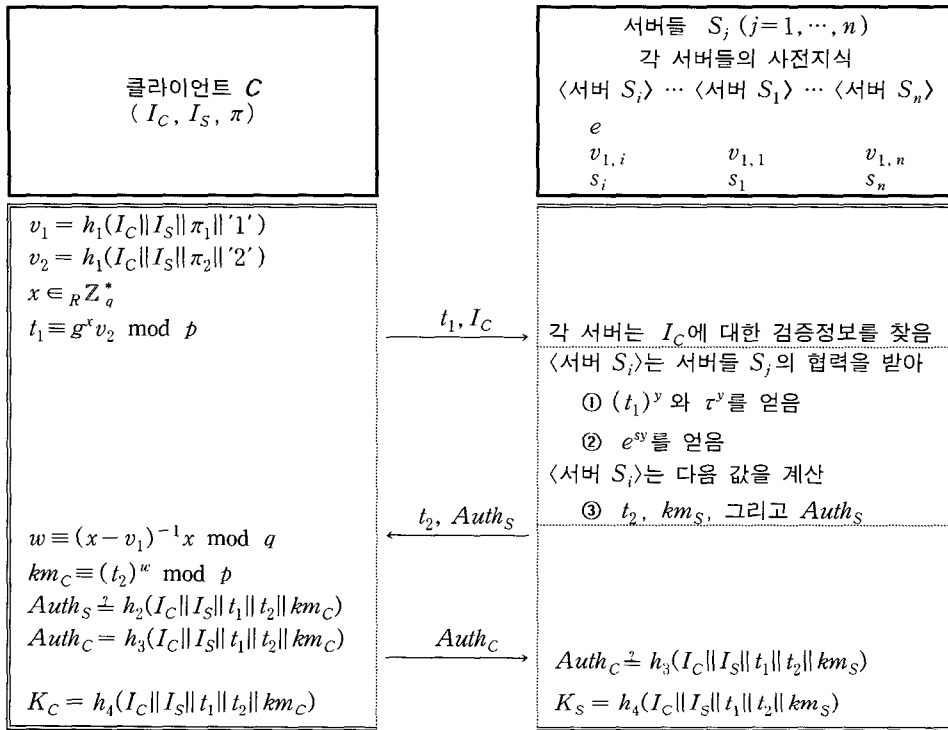 클라이언트 C
( I_C, I_S, π)
서버들 S_j (j=1, ⋯, n)
각 서버들의 사전지식
〈서버 S_i〉 ⋯ 〈서버 S_1〉 ⋯ 〈서버 S_n〉
e
v_{1, i} v_{1, 1} v_{1, n}
s_i s_1 s_n
v_1 = h_1(I_C||I_S||π_1||'1')
v_2 = h_1(I_C||I_S||π_2||'2')
x ∈_R ℤ_q^*
t_1 ≡ g^x v_2 mod p
t_1, I_C
각 서버는 I_C에 대한 검증정보를 찾음
〈서버 S_i〉는 서버들 S_j의 협력을 받아
① (t_1)^y 와 τ^y를 얻음
② e^{sy}를 얻음
〈서버 S_i〉는 다음 값을 계산
③ t_2, km_S, 그리고 Auth_S
t_2, Auth_S
w ≡ (x − v_1)^{−1} x mod q
km_C ≡ (t_2)^w mod p
Auth_S ≟ h_2(I_C||I_S||t_1||t_2||km_C)
Auth_C = h_3(I_C||I_S||t_1||t_2||km_C)
Auth_C
Auth_C ≟ h_3(I_C||I_S||t_1||t_2||km_S)
K_C = h_4(I_C||I_S||t_1||t_2||km_C)
K_S = h_4(I_C||I_S||t_1||t_2||km_S)